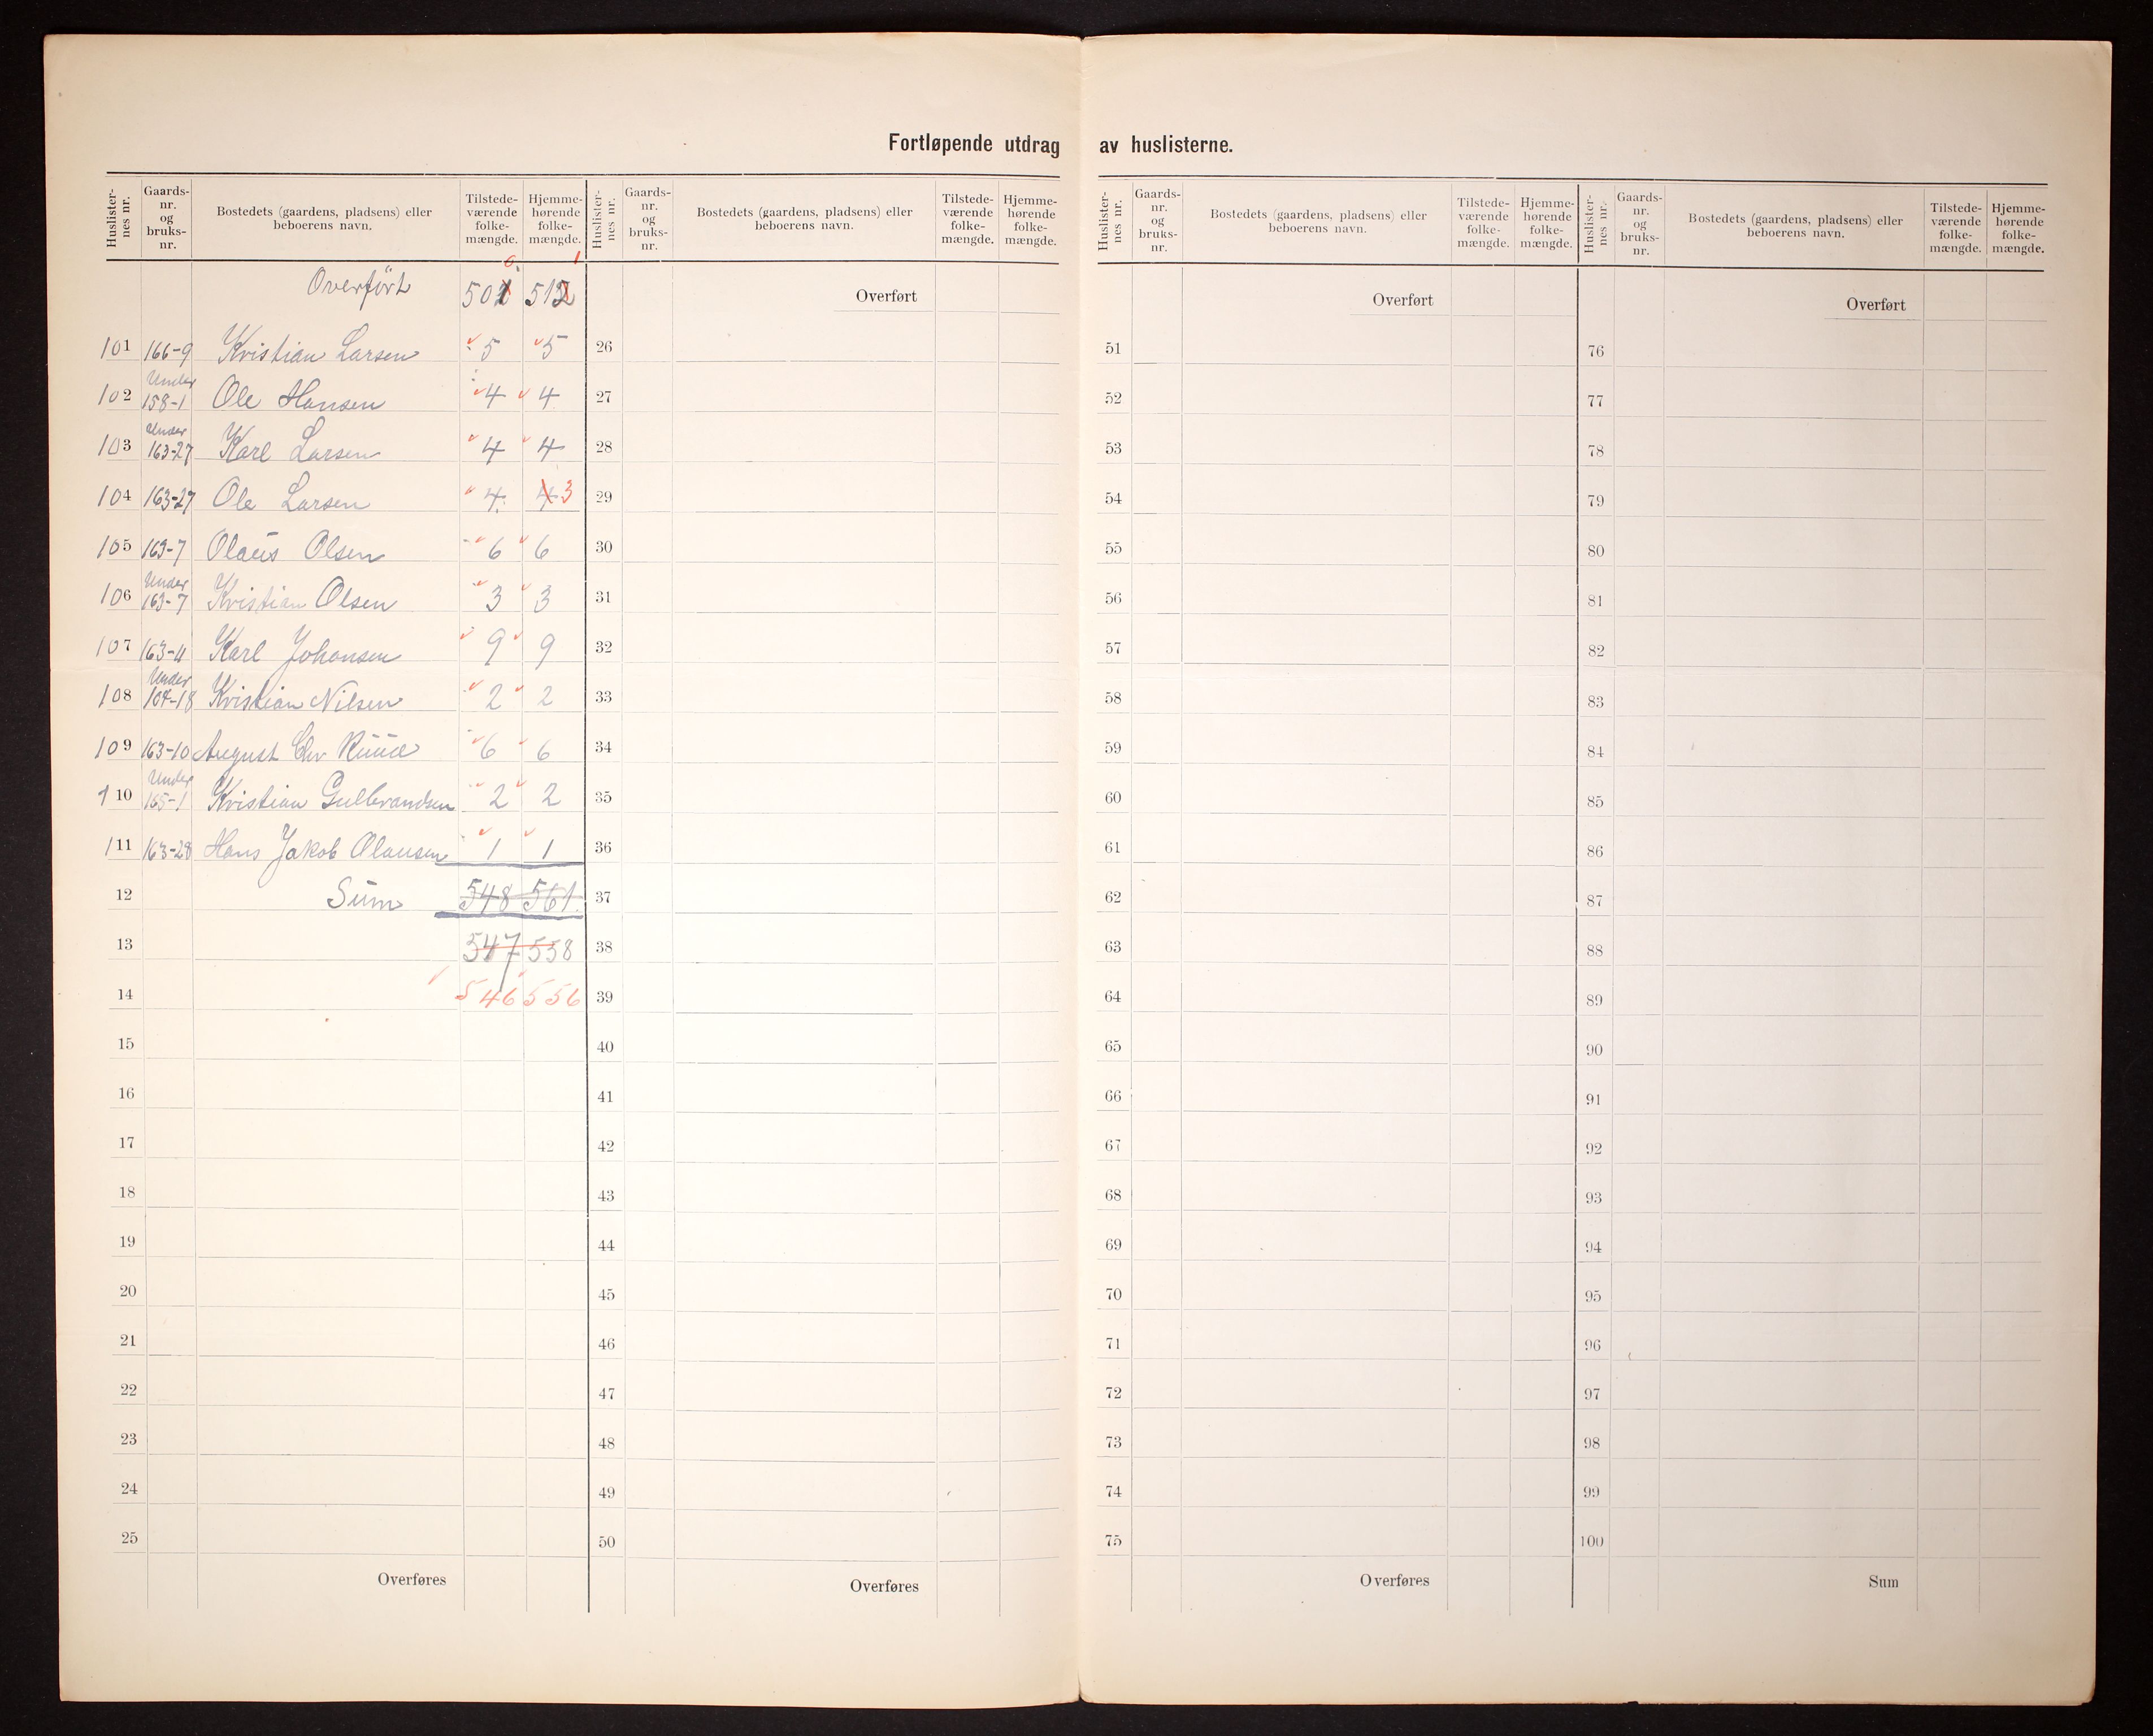 Fortløpende utdrag av huslisterne.
Huslister-nes nr. Gaards-nr. og bruks-nr. Bostedets (gaardens, pladsens) eller beboerens navn. Tilstede-værende folke-mængde. Hjemme-hørende folke-mængde.
Overført 501 0 512 1
101 166-9 Kristian Larsen 5 5
102 Under 158-1 Ole Hansen 4 4
103 Under 163-27 Karl Larsen 4 4
104 163-27 Ole Larsen 4 4 3
105 163-7 Olaus Olsen 6 6
106 Under 163-7 Kristian Olsen 3 3
107 163-4 Karl Johansen 9 9
108 Under 104-18 Kristian Nilsen 2 2
109 163-10 August Chr Ruud 6 6
110 Under 165-1 Kristian Gulbrandsen 2 2
111 163-28 Hans Jakob Olausen 1 1
12 Sum 548 561
13 547 558
14 546 556
15
16
17
18
19
20
21
22
23
24
25
Overføres
Huslister-nes nr. Gaards-nr. og bruks-nr. Bostedets (gaardens, pladsens) eller beboerens navn. Tilstede-værende folke-mængde. Hjemme-hørende folke-mængde.
Overført
26
27
28
29
30
31
32
33
34
35
36
37
38
39
40
41
42
43
44
45
46
47
48
49
50
Overføres
Huslister-nes nr. Gaards-nr. og bruks-nr. Bostedets (gaardens, pladsens) eller beboerens navn. Tilstede-værende folke-mængde. Hjemme-hørende folke-mængde.
Overført
51
52
53
54
55
56
57
58
59
60
61
62
63
64
65
66
67
68
69
70
71
72
73
74
75
Overføres
Huslister-nes nr. Gaards-nr. og bruks-nr. Bostedets (gaardens, pladsens) eller beboerens navn. Tilstede-værende folke-mængde. Hjemme-hørende folke-mængde.
Overført
76
77
78
79
80
81
82
83
84
85
86
87
88
89
90
91
92
93
94
95
96
97
98
99
100
Sum